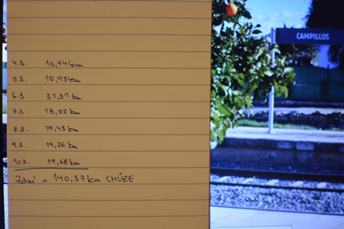 CAMPILLOS
4.3. 16,74 km
5.3. 15,93 km
6.3. 31,31 km
7.3. 18,02 km
8.3. 19,43 km
9.3. 19,26 km
10.3. 19,68 km
7dní = 140,37 km CHŮZE